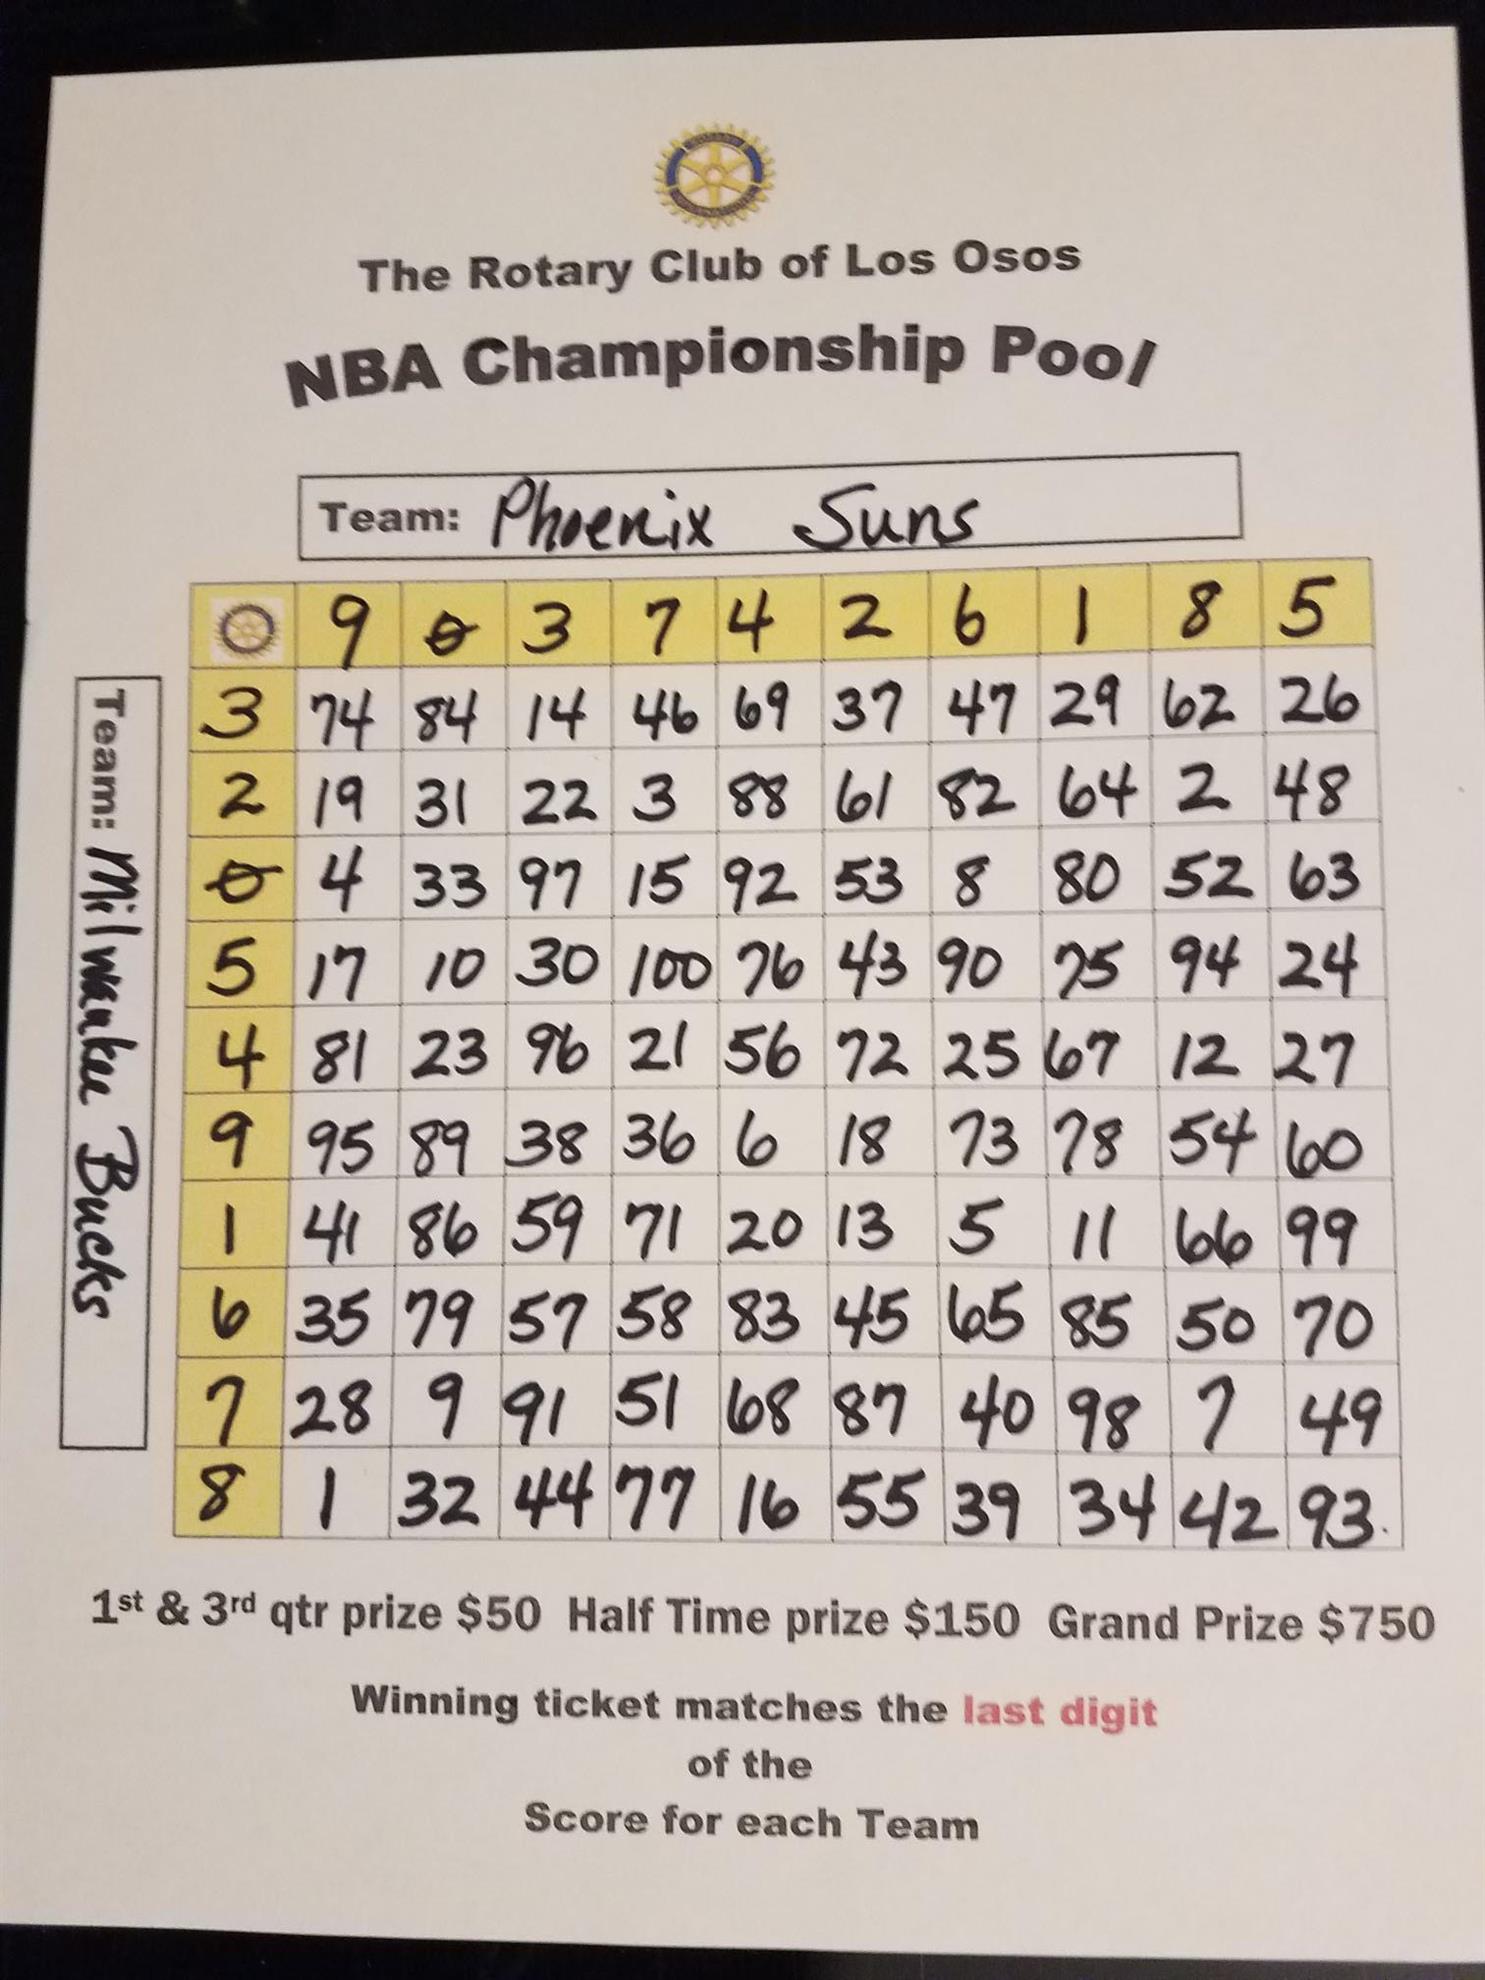 The Rotary Club of Los Osos
NBA Championship Pool
Team: Phoenix Suns
Team: Milwaukee Bucks
9 0 3 7 4 2 6 1 8 5
3 74 84 14 46 69 37 47 29 62 26
2 19 31 22 3 88 61 82 64 2 48
0 4 33 97 15 92 53 8 80 52 63
5 17 10 30 100 76 43 90 75 94 24
4 81 23 96 21 56 72 25 67 12 27
9 95 89 38 36 6 18 73 78 54 60
1 41 86 59 71 20 13 5 11 66 99
6 35 79 57 58 83 45 65 85 50 70
7 28 9 91 51 68 87 40 98 7 49
8 1 32 44 77 16 55 39 34 42 93
1st & 3rd qtr prize $50 Half Time prize $150 Grand Prize $750
Winning ticket matches the last digit
of the
Score for each Team